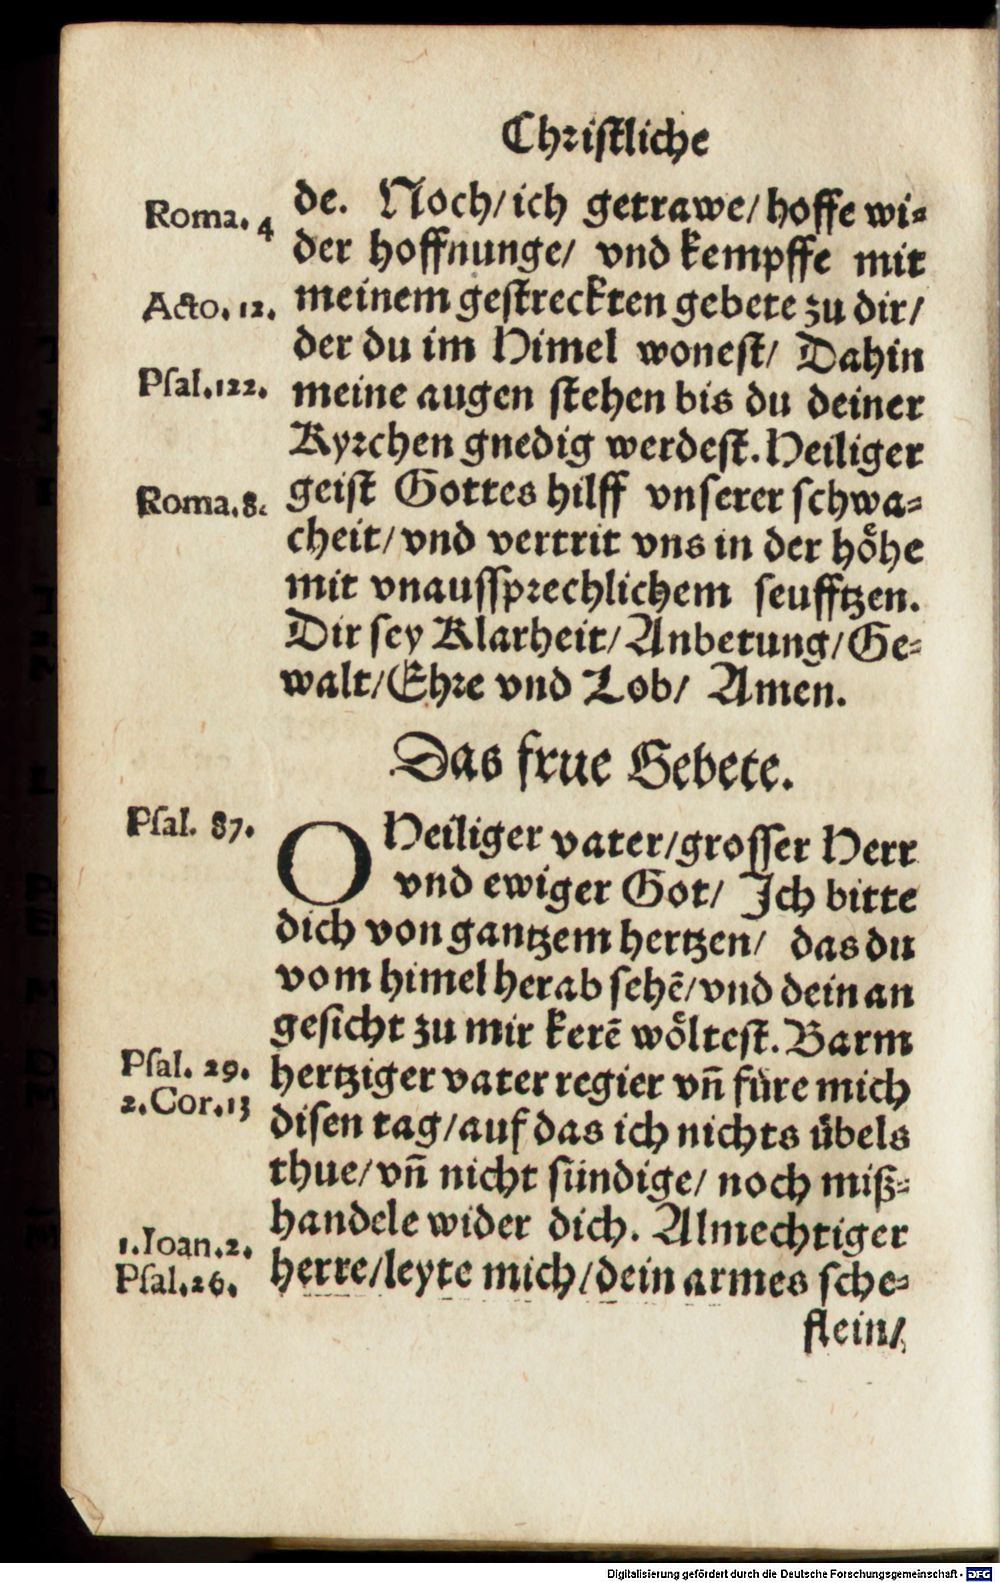 Christliche
Roma. 4
de. Noch/ ich getrawe/ hoffe wi-
der hoffnunge/ vnd kempffe mit
Acto. 12.
meinem gestreckten gebete zu dir/
der du im Himel wonest/ Dahin
Psal. 122.
meine augen stehen bis du deiner
Kyrchen gnedig werdest. Heiliger
Roma. 8.
geist Gottes hilff vnserer schwa-
cheit/ vnd vertrit vns in der höhe
mit vnaussprechlichem seufftzen.
Dir sey Klarheit/ Anbetung/ Ge-
walt/ Ehre vnd Lob/ Amen.
Das frue Gebete.
Psal. 87.
O Heiliger vater/ grosser Herr
vnd ewiger Got/ Ich bitte
dich von gantzem hertzen/ das du
vom himel herab sehē/ vnd dein an
gesicht zu mir kerē wöltest. Barm
Psal. 29.
hertziger vater regier vn̄ füre mich
2. Cor. 13
disen tag/ auf das ich nichts übels
thue/ vn̄ nicht sündige/ noch miß-
handele wider dich. Almechtiger
1. Ioan. 2.
Psal. 26.
herre/ leyte mich/ dein armes sche-
flein/
Digitalisierung gefördert durch die Deutsche Forschungsgemeinschaft - DFG